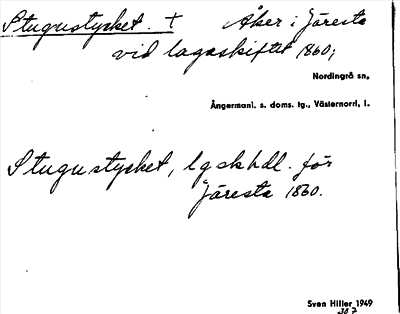 Stugustycket. + Åker i Järesta
vid lagaskiftet 1860;
Nordingrå sn,
Ångermanl. s. doms. tg., Västernorrl. l.
Stugustycket, lgskhdl. för
Järesta 1860.
Sven Hiller 1949
307